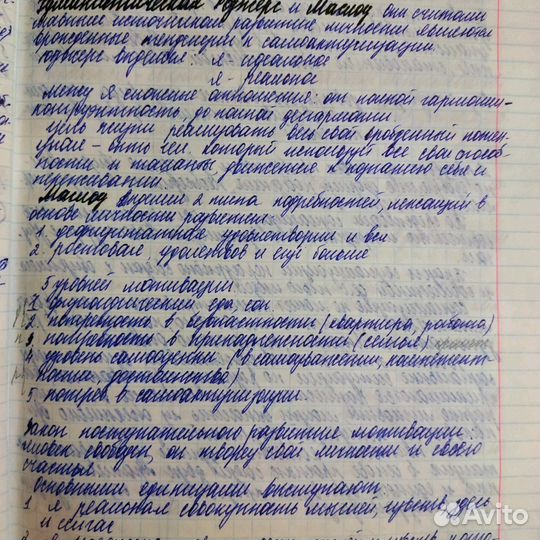 Гуманистическая Роджерс и Маслоу они считали
главным источником развития личности
врожденные тенденции к самоактуализации
Роджерс выделял: я - идеальное
я - реальное
Между я сложные отношения: от полной гармонии -
конгруэнтность, до полной дисгармонии.
Цель жизни реализовать весь свой врожденный потен-
циал - быть чел. который использует все свои способ-
ности и таланты движение к познанию себя и
переживаний.
Маслоу выделил 2 типа потребностей, лежащих в
основе личности развития:
1. дефицитарное, удовлетворил и все
2. ростовые, удовлетвов и еще более
5 уровней мотивации
1 физиологический еда, сон.
2. потребность в безопасности (квартира, работа)
3 потребность в принадлежности (семья)
4 уровень самооценки (в самоуважении, компетент
ности, достоинства)
5. потреб. в самоактуализации.
Закон поступательного развития мотивации:
человек свободен, он творец свой личности и своего
счастья
основными единицами выступают:
1 я реальная совокупность мыслей, чувств здесь
и сейчас
Avito